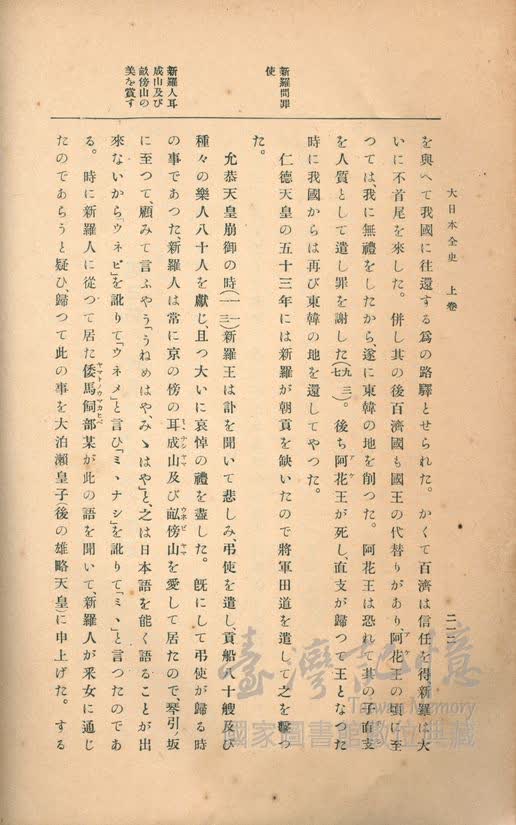 大日本全史　上卷
二一二
を與へて我國に往還する爲の路驛とせられた。かくて百濟は信任を得、新羅は大
いに不首尾を來した。併し其の後百濟國も國王の代替りがあり、阿花王の頃に至
つては、我に無禮をしたから、遂に東韓の地を削つた。阿花王は恐れて其の子直支
を人質として遣し罪を謝した(九七三)。後ち阿花王が死し、直支が歸つて王となつた
時に我國からは再び東韓の地を還してやつた。
新羅問罪
使
仁德天皇の五十三年には新羅が朝貢を缺いたので將軍田道を遣して之を擊つ
た。
允恭天皇崩御の時(一一三)新羅王は訃を聞いて悲しみ、弔使を遣し、貢船八十艘及び
種々の樂人八十人を獻じ、且つ大いに哀悼の禮を盡した。既にして弔使が歸る時
新羅人耳
成山及び
畝傍山の
美を賞す
の事であつた、新羅人は常に京の傍の耳成山及び畝傍山を愛して居たので、琴引ノ坂
に至つて、顧みて言ふやう「うねめはや、みゝはや」と、之は日本語を能く語ることが出
來ないから「ウネビ」を訛りて「ウネメ」と言ひ「ミヽナシ」を訛りて「ミヽ」と言つたのであ
る。時に新羅人に從つて居た倭馬飼部某が此の語を聞いて、新羅人が釆女に通じ
たのであらうと疑ひ、歸つて此の事を大泊瀨皇子(後の雄略天皇)に申上げた。する
臺灣記憶
Taiwan Memory
國家圖書館數位典藏